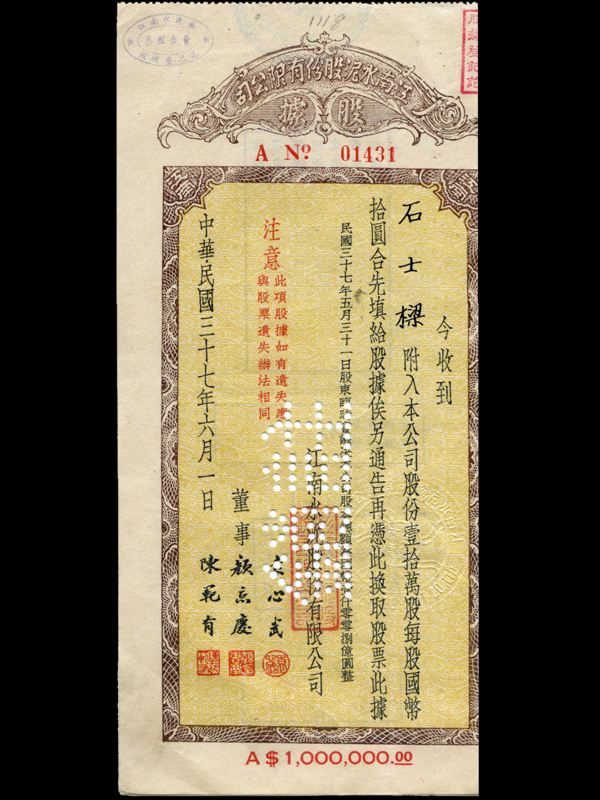 1118
江南水泥股份有限公司
股據
股據登記訖
A Nº 01431
今收到
石士樑 附入本公司股份壹拾萬股每股國幣
拾圓合先填給股據俟另通告再憑此換取股票此據
民國三十七年五月三十一日股東臨時
仟零零捌億圓整
江南水泥股份有限公司
董事
心武
顏惠慶
陳範有
注意
此項股據如有遺失應
與股票遺失辦法相同
中華民國三十七年六月一日
A $ 1,000,000.00